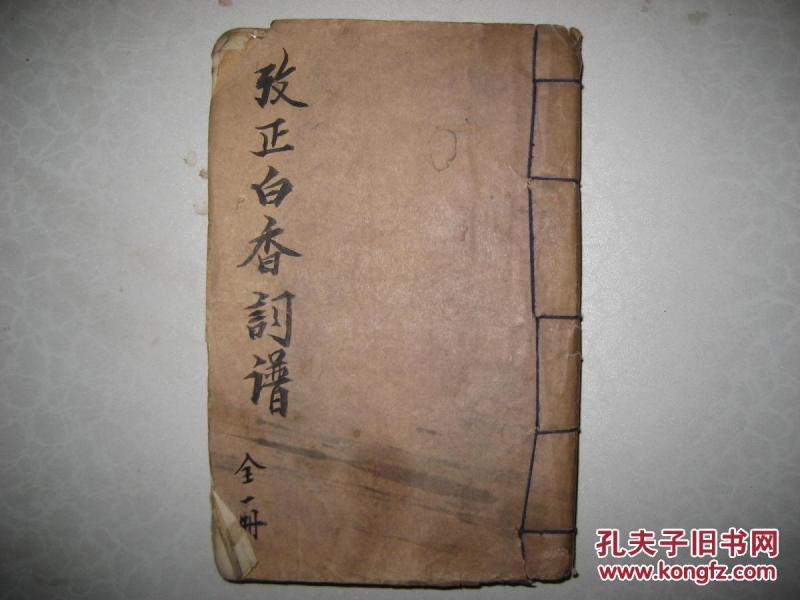 攷正白香詞谱
全一册
孔夫子旧书网
www.kongfz.com